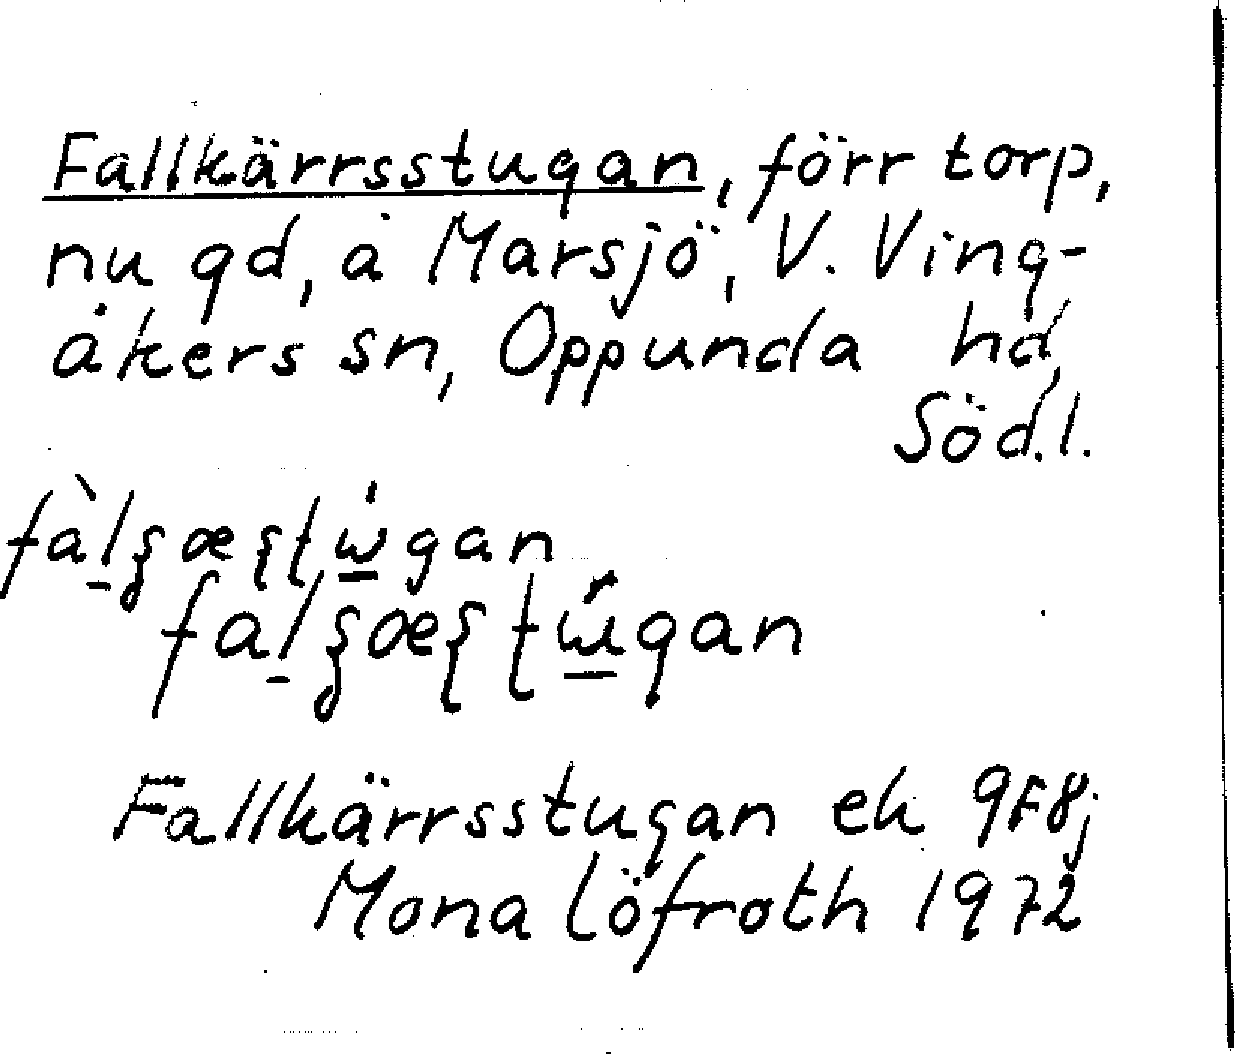 Fallkärrsstugan, förr torp,
nu gd, å Marsjö, V. Ving-
åkers sn, Oppunda hd,
Söd.l.
Fallkärrsstugan ek 9F8j
Mona Löfroth 1972